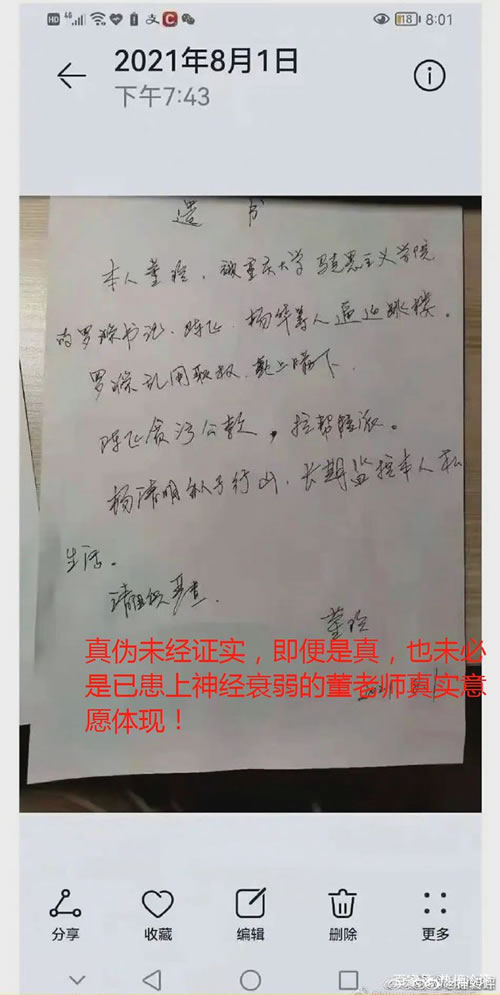 HD 4G 8:01
2021年8月1日
下午7:43
遗 书
本人董玲,被重庆大学马克思主义学院
的罗 书记、陈飞、杨 等人逼迫跳楼。
罗 乱用职权,欺上瞒下。
陈飞贪污公款,拉帮结派。
杨 明 ,长期监控本人私
生活。
请组织 查。
董玲
真伪未经证实,即便是真,也未必
是已患上神经衰弱的董老师真实意
愿体现!
分享 收藏 编辑 删除 更多